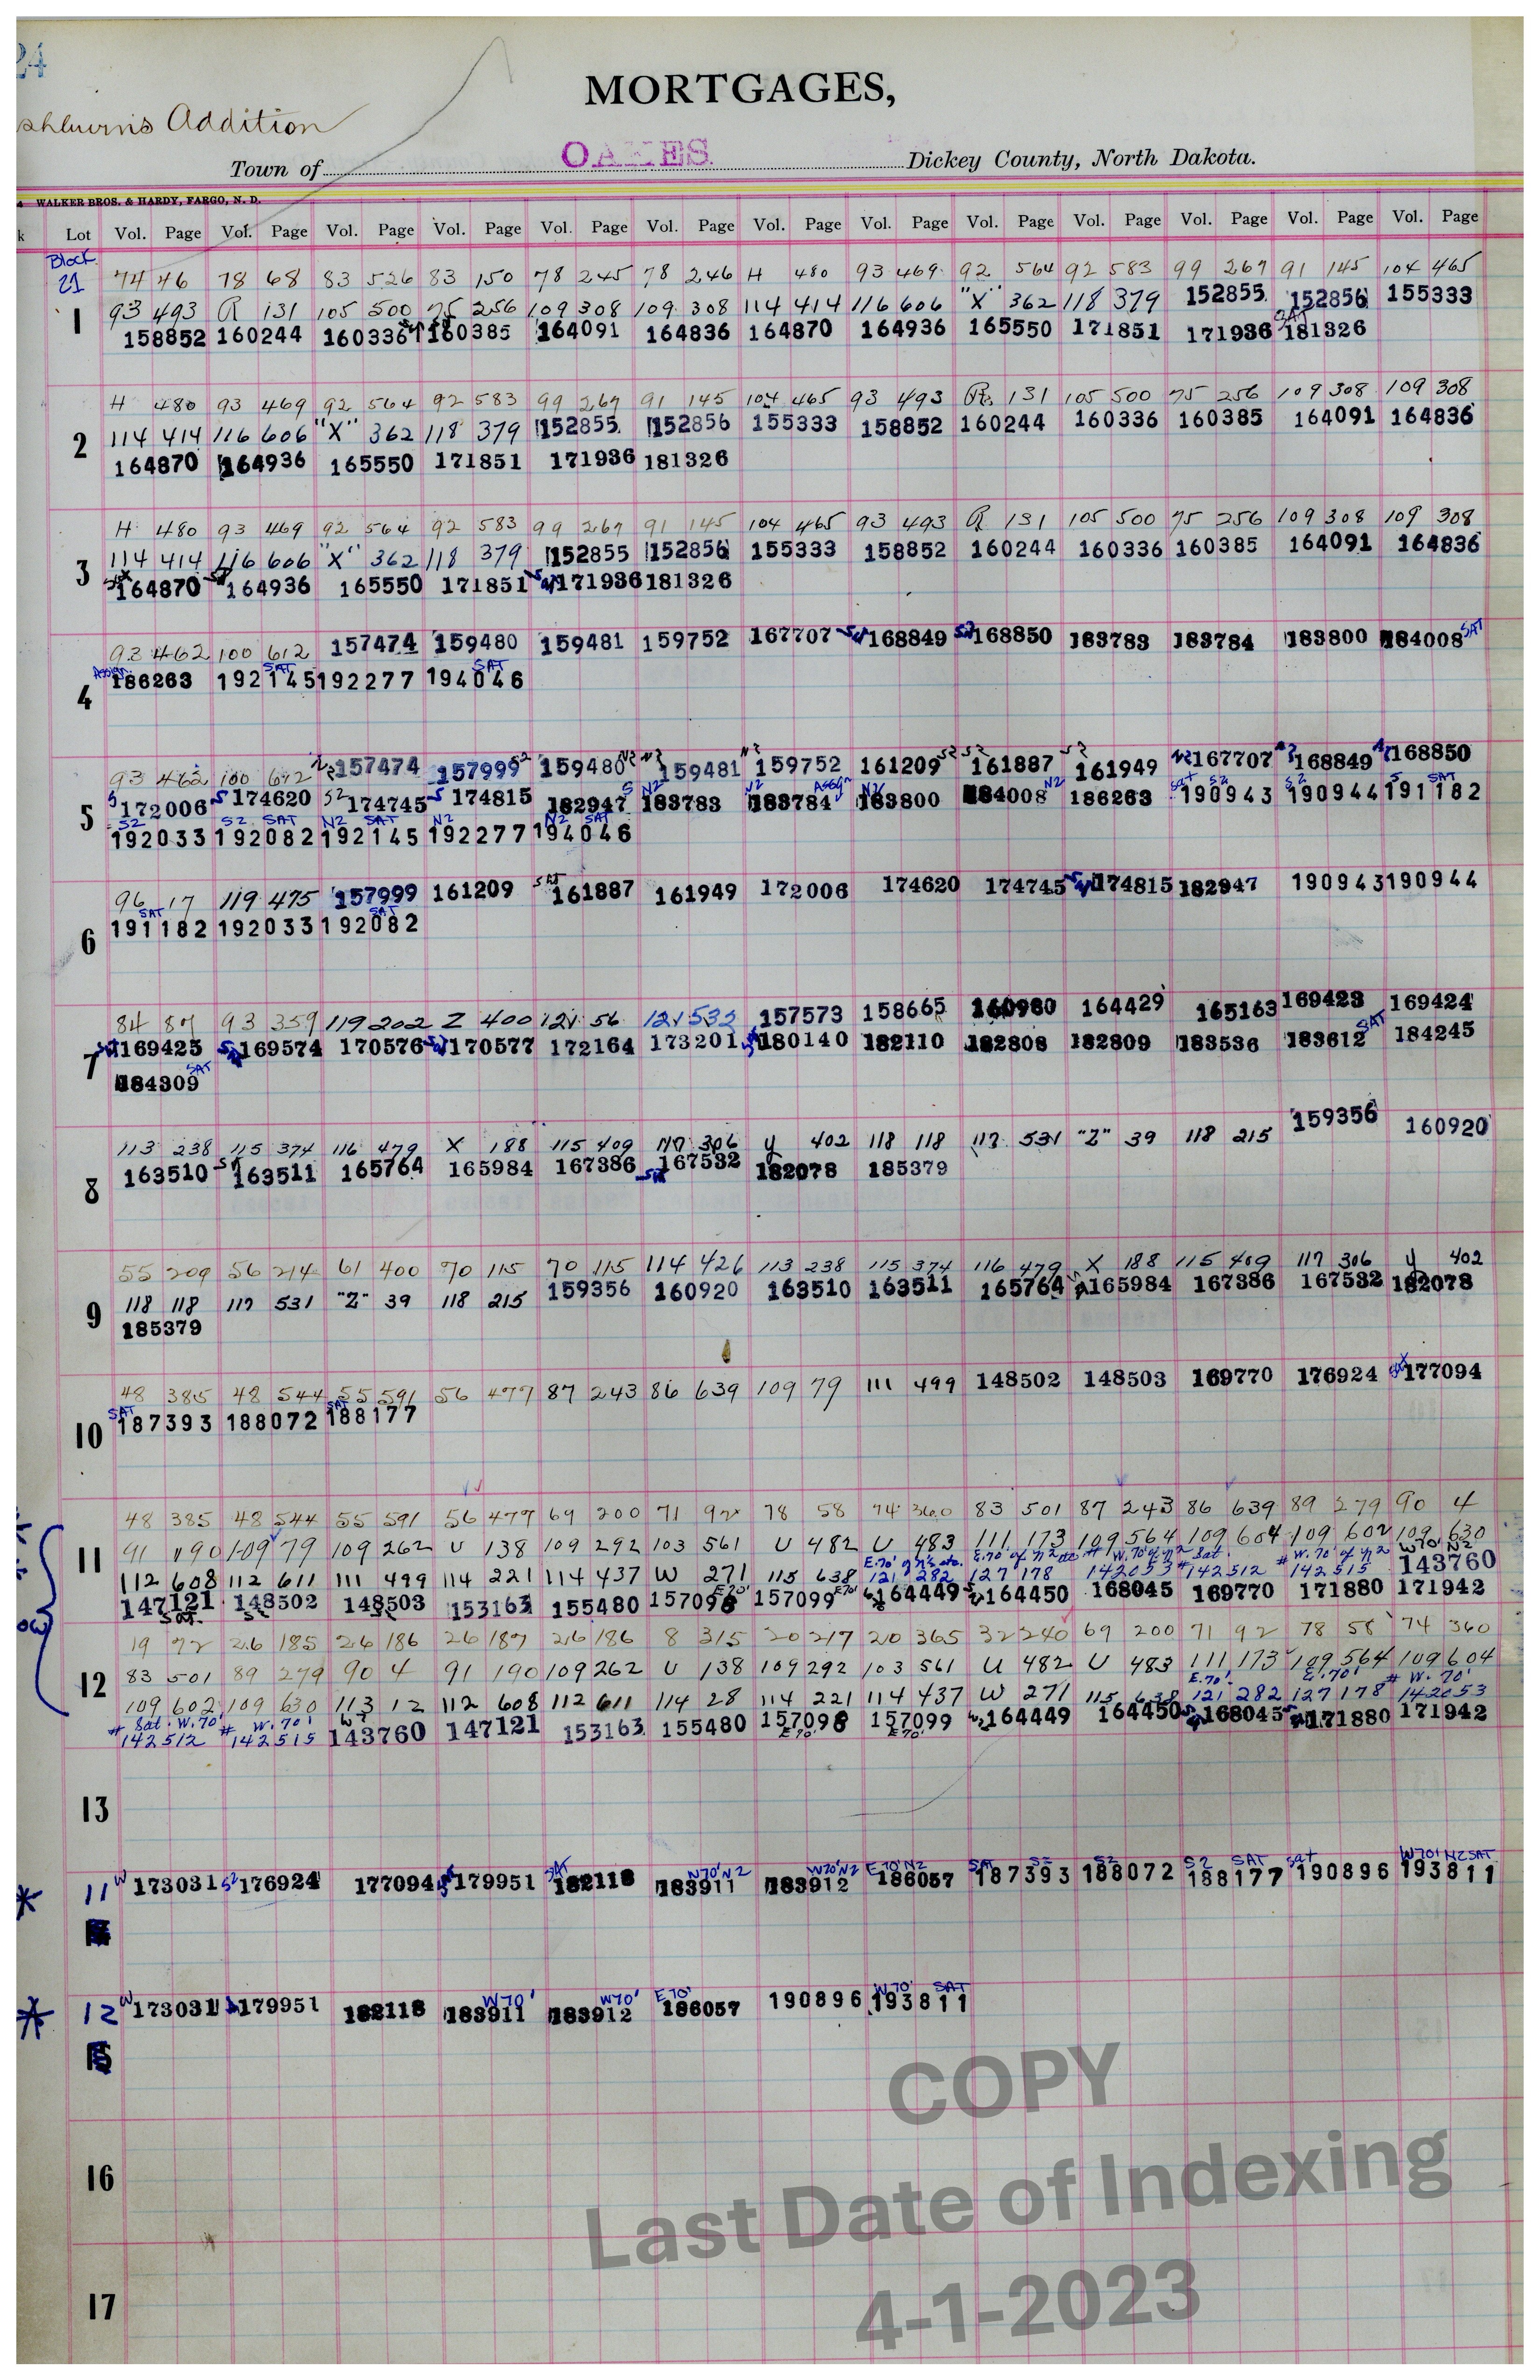 24
MORTGAGES,
shburn's Addition
Town of OAKES. Dickey County, North Dakota.
WALKER BROS. & HARDY, FARGO, N. D.
k Lot Vol. Page Vol. Page Vol. Page Vol. Page Vol. Page Vol. Page Vol. Page Vol. Page Vol. Page Vol. Page Vol. Page Vol. Page Vol. Page
Block
21 74 46 78 68 83 526 83 150 78 245 78 246 H 480 93 469 92 564 92 583 99 267 91 145 104 465
1 93 493 R 131 105 500 75 256 109 308 109 308 114 414 116 606 "X" 362 118 379 152855 152856 155333
SAT
158852 160244 160336 160385 164091 164836 164870 164936 165550 171851 171936 181326
H 480 93 469 92 564 92 583 99 267 91 145 104 465 93 493 R 131 105 500 75 256 109 308 109 308
2 114 414 116 606 "X" 362 118 379 152855 152856 155333 158852 160244 160336 160385 164091 164836
164870 164936 165550 171851 171936 181326
H 480 93 469 92 564 92 583 99 267 91 145 104 465 93 493 R 131 105 500 75 256 109 308 109 308
3 114 414 116 606 "X" 362 118 379 152855 152856 155333 158852 160244 160336 160385 164091 164836
164870 164936 165550 171851 171936 181326
93 462 100 612 157474 159480 159481 159752 167707 168849 168850 183783 183784 183800 184008 SAT
Assign. SAT SAT
4 186263 192145 192277 194046
93 462 100 612 N2 157474 157999 S2 159480 N2 N2 159481 N2 159752 161209 S2 S2 161887 S2 161949 N2 167707 N2 168849 N2 168850
S N2 N2 Assign N2 N2 Sat S2 S2 S SAT
5 S 172006 S 174620 S2 174745 S 174815 182947 183783 183784 183800 184008 186263 190943 190944 191182
S2 S2 SAT N2 SAT N2 N2 SAT
192033 192082 192145 192277 194046
96 17 119 475 157999 161209 SAT 161887 161949 172006 174620 174745 174815 182947 190943 190944
SAT SAT
6 191182 192033 192082
84 87 93 359 119 202 Z 400 121 56 121 532 157573 158665 160980 164429 165163 169423 169424
7 169425 169574 170576 170577 172164 173201 180140 182110 182808 182809 183536 183612 SAT 184245
184309 SAT
113 238 115 374 116 479 X 188 115 409 117 306 y 402 118 118 117 531 "Z" 39 118 215 159356 160920
8 163510 163511 165764 165984 167386 167532 182078 185379
55 209 56 214 61 400 70 115 70 115 114 426 113 238 115 374 116 479 X 188 115 409 117 306 y 402
9 118 118 117 531 "Z" 39 118 215 159356 160920 163510 163511 165764 165984 167386 167532 182078
185379
48 385 48 544 55 591 56 477 87 243 86 639 109 79 111 499 148502 148503 169770 176924 177094
SAT SAT
10 187393 188072 188177
48 385 48 544 55 591 56 477 69 200 71 92 78 58 74 360 83 501 87 243 86 639 89 279 90 4
11 91 190 109 79 109 262 U 138 109 292 103 561 U 482 U 483 111 173 109 564 109 604 109 602 109 630
E.70' of N2 etc. E.70' of N2 etc # W.70' of N2 Sat. # W.70' of N2 W70' N2
112 608 112 611 111 499 114 221 114 437 W 271 115 638 121 282 127 178 142053 # 142512 # 142515 143760
147121 148502 148503 153163 155480 157098 E70' 157099 E70' 164449 164450 168045 169770 171880 171942
Sat.
19 72 26 185 26 186 26 187 26 186 8 315 20 217 20 365 32 240 69 200 71 92 78 58 74 360
12 83 501 89 279 90 4 91 190 109 262 U 138 109 292 103 561 U 482 U 483 111 173 109 564 109 604
E.70' E.70' # W. 70'
109 602 109 630 113 12 112 608 112 611 114 28 114 221 114 437 W 271 115 638 121 282 127 178 142053
# Sat. W.70' # W.70'
142512 142515 143760 147121 153163 155480 157098 157099 164449 164450 168045 171880 171942
E70' E70'
13
W70' N2 W70' N2 E70' N2 SAT S2 S2 S2 SAT sat W70' N2 SAT
* 11 W 173031 S2 176924 177094 179951 SAT 182118 183911 183912 186057 187393 188072 188177 190896 193811
W70' W70' E70' W70' SAT
* 12 W 173031 179951 182118 183911 183912 186057 190896 193811
16
17
COPY
Last Date of Indexing
4-1-2023